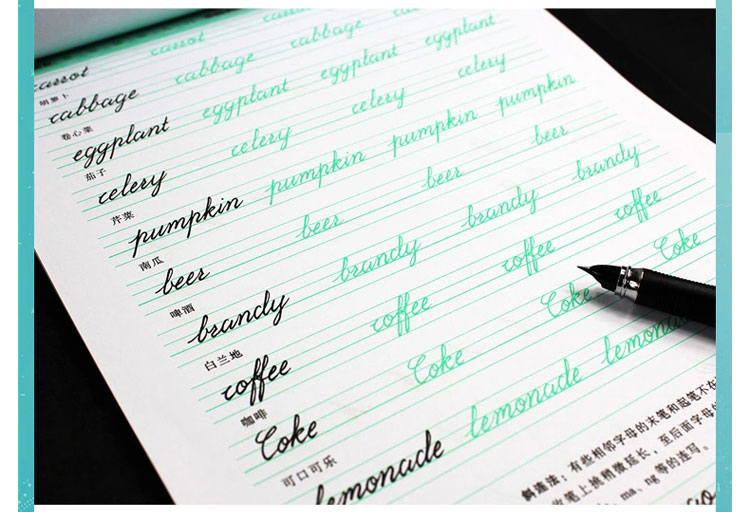 carrot carrot carrot
胡萝卜
cabbage cabbage cabbage cabbage
卷心菜
eggplant eggplant eggplant eggplant
茄子
celery celery celery celery
芹菜
pumpkin pumpkin pumpkin pumpkin
南瓜
beer beer beer beer
啤酒
brandy brandy brandy brandy
白兰地
coffee coffee coffee coffee
咖啡
Coke Coke Coke Coke
可口可乐
lemonade lemonade lemona
斜连法：有些相邻字母的末笔和起笔不在
收笔上挑稍微延长，至后面字母的
ma、ng等的连写。